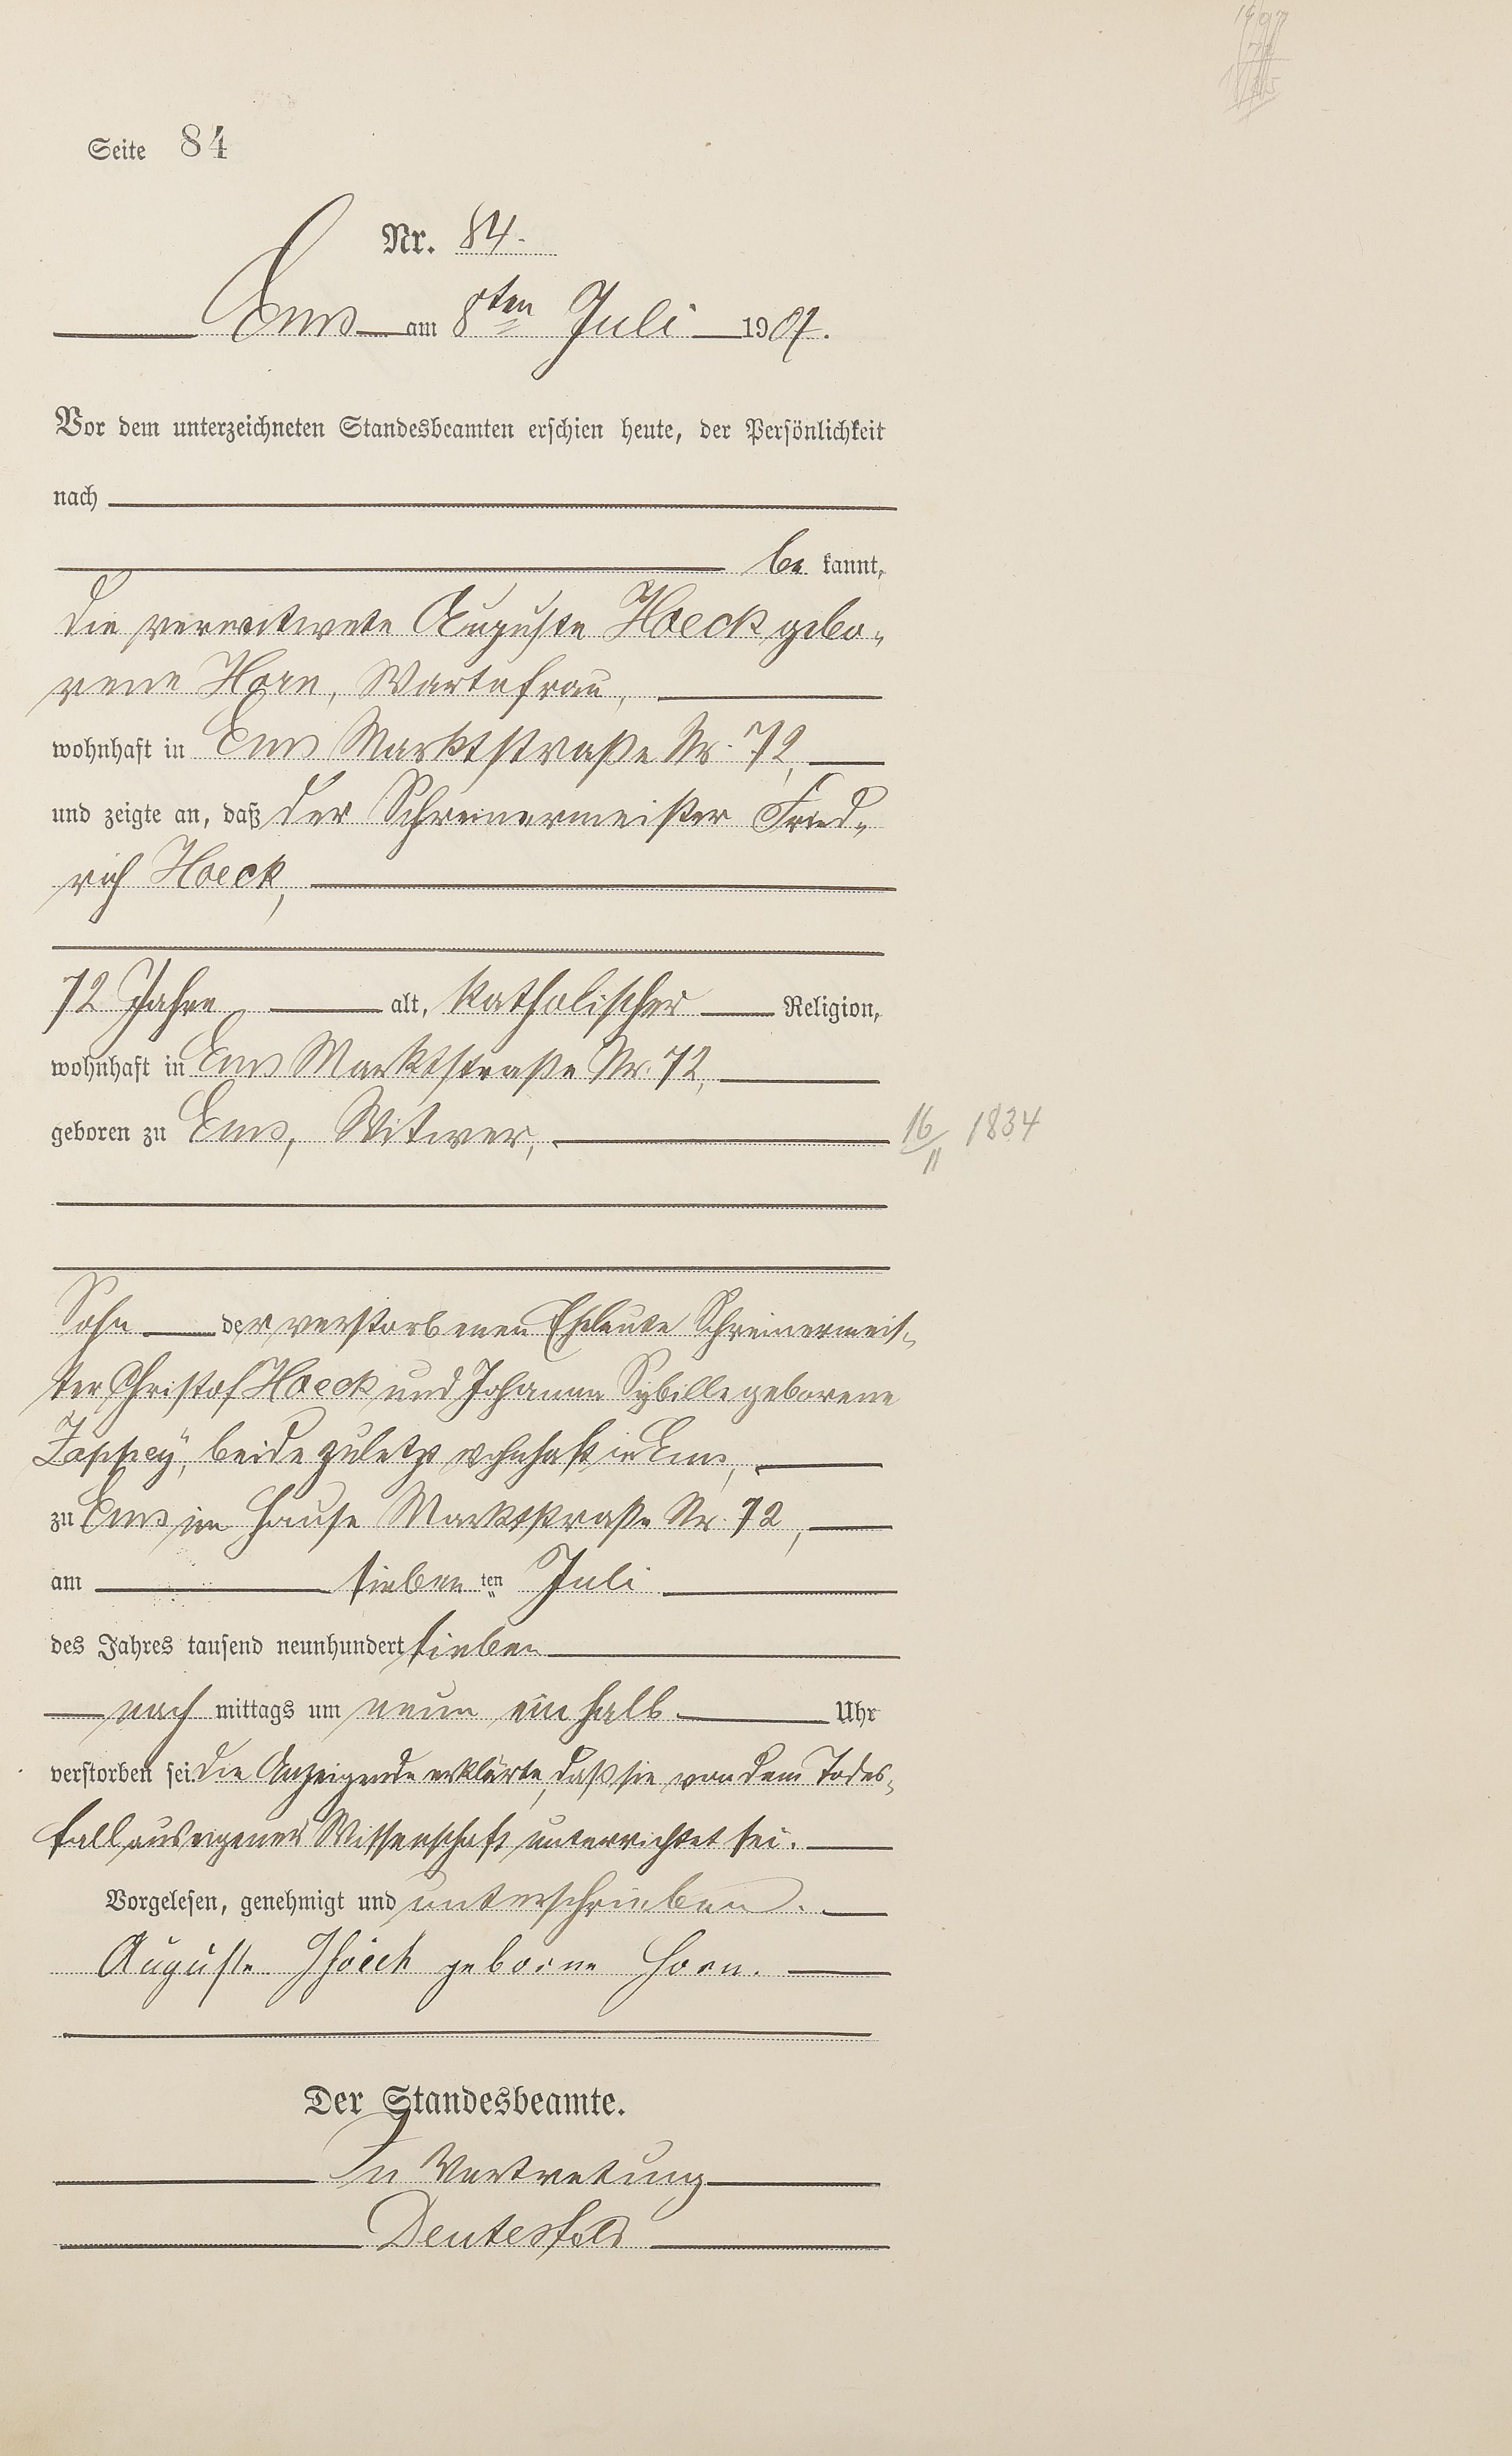 Seite 84
Nr. 84.
Ems am 8ten Juli 1907.
Vor dem unterzeichneten Standesbeamten erschien heute, der Persönlichkeit
nach
be kannt,
die verwitwete Auguste Hoeck gebo-
rene Horn, Wartefrau,
wohnhaft in Ems Marktstraße Nr. 72,
und zeigte an, daß der Schreinermeister Fried-
rich Hoeck,
72 Jahre alt, katholischer Religion,
wohnhaft in Ems Marktstraße Nr. 72,
geboren zu Ems, Witwer,
16/11 1834
Sohn der verstorbenen Eheleute Schreinermeis-
ter Christof Hoeck und Johanna Sybille geborene
beide zuletzt wohnhaft in Ems,
zu Ems im Hause Marktstraße Nr. 72,
am sieben ten Juli
des Jahres tausend neunhundert sieben
nach mittags um neun ein halb Uhr
verstorben sei. Die Anzeigende erklärte, daß sie von dem Todes-
fall aus eigener Wissenschaft unterrichtet sei.
Vorgelesen, genehmigt und unterschrieben.
Auguste geborne Horn.
Der Standesbeamte.
In Vertretung